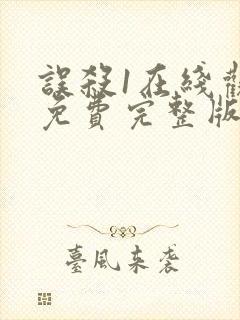 誤殺1在綫觀
免費完整版
臺風来袭